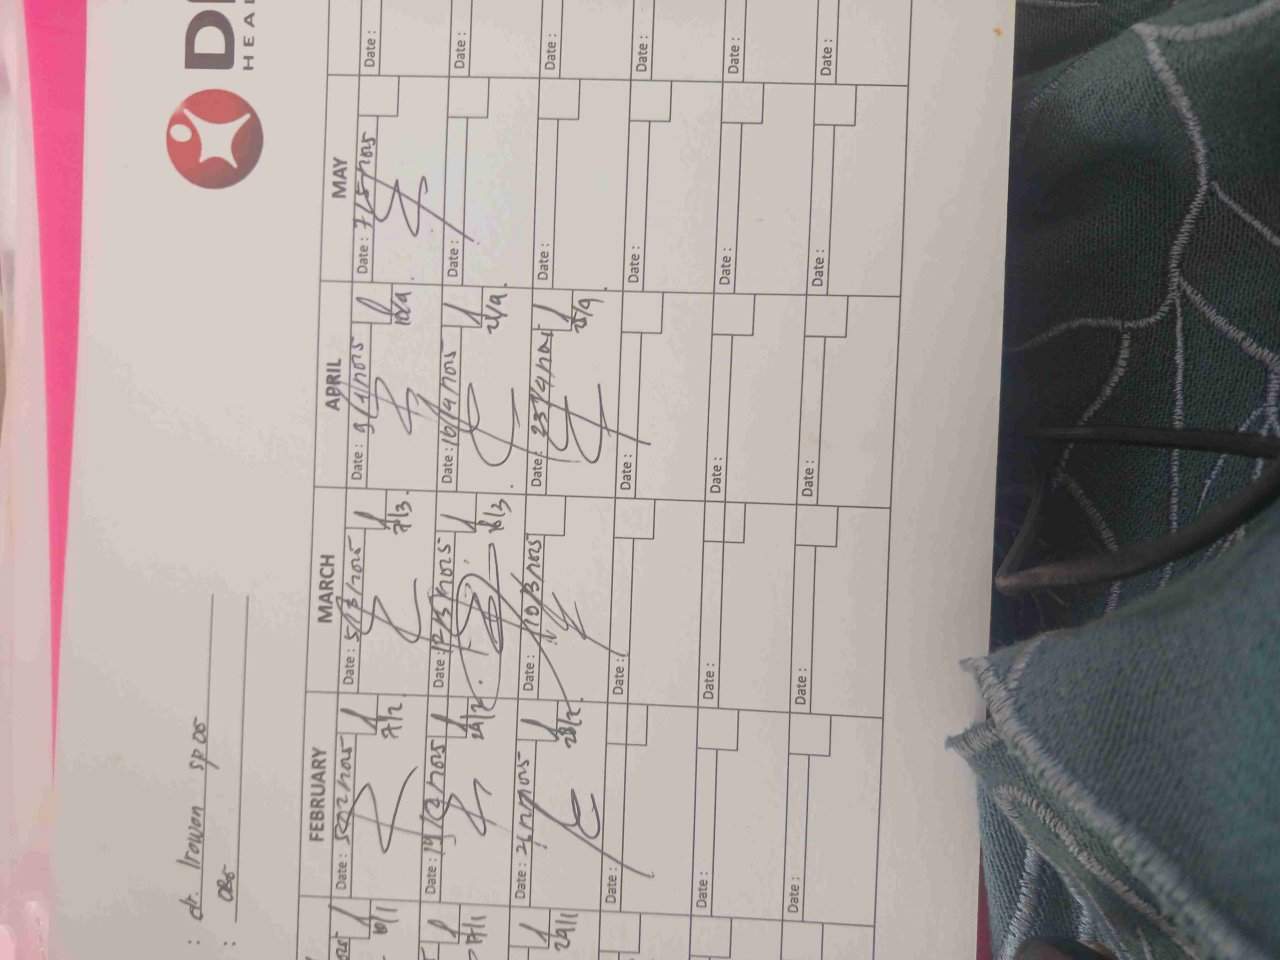 D
HEA
: dr. Irawan sp OG
: OBS
FEBRUARY MARCH APRIL MAY
Date : 5/2/2025 Date : 5/3/2025 Date : 9/4/2025 Date : 7/5/2025 Date :
10/1 7/2 7/3.
Date : 19/2/2025 Date : 17/3/2025 Date : 16/4/2025 Date : Date :
17/1 24/2. 18/3 21/4.
Date : 26/2/2025 Date : Date : 23/4/2025 Date : Date :
24/1 28/2. 25/4.
Date : Date : Date : Date : Date :
Date : Date : Date : Date : Date :
Date : Date : Date : Date : Date :